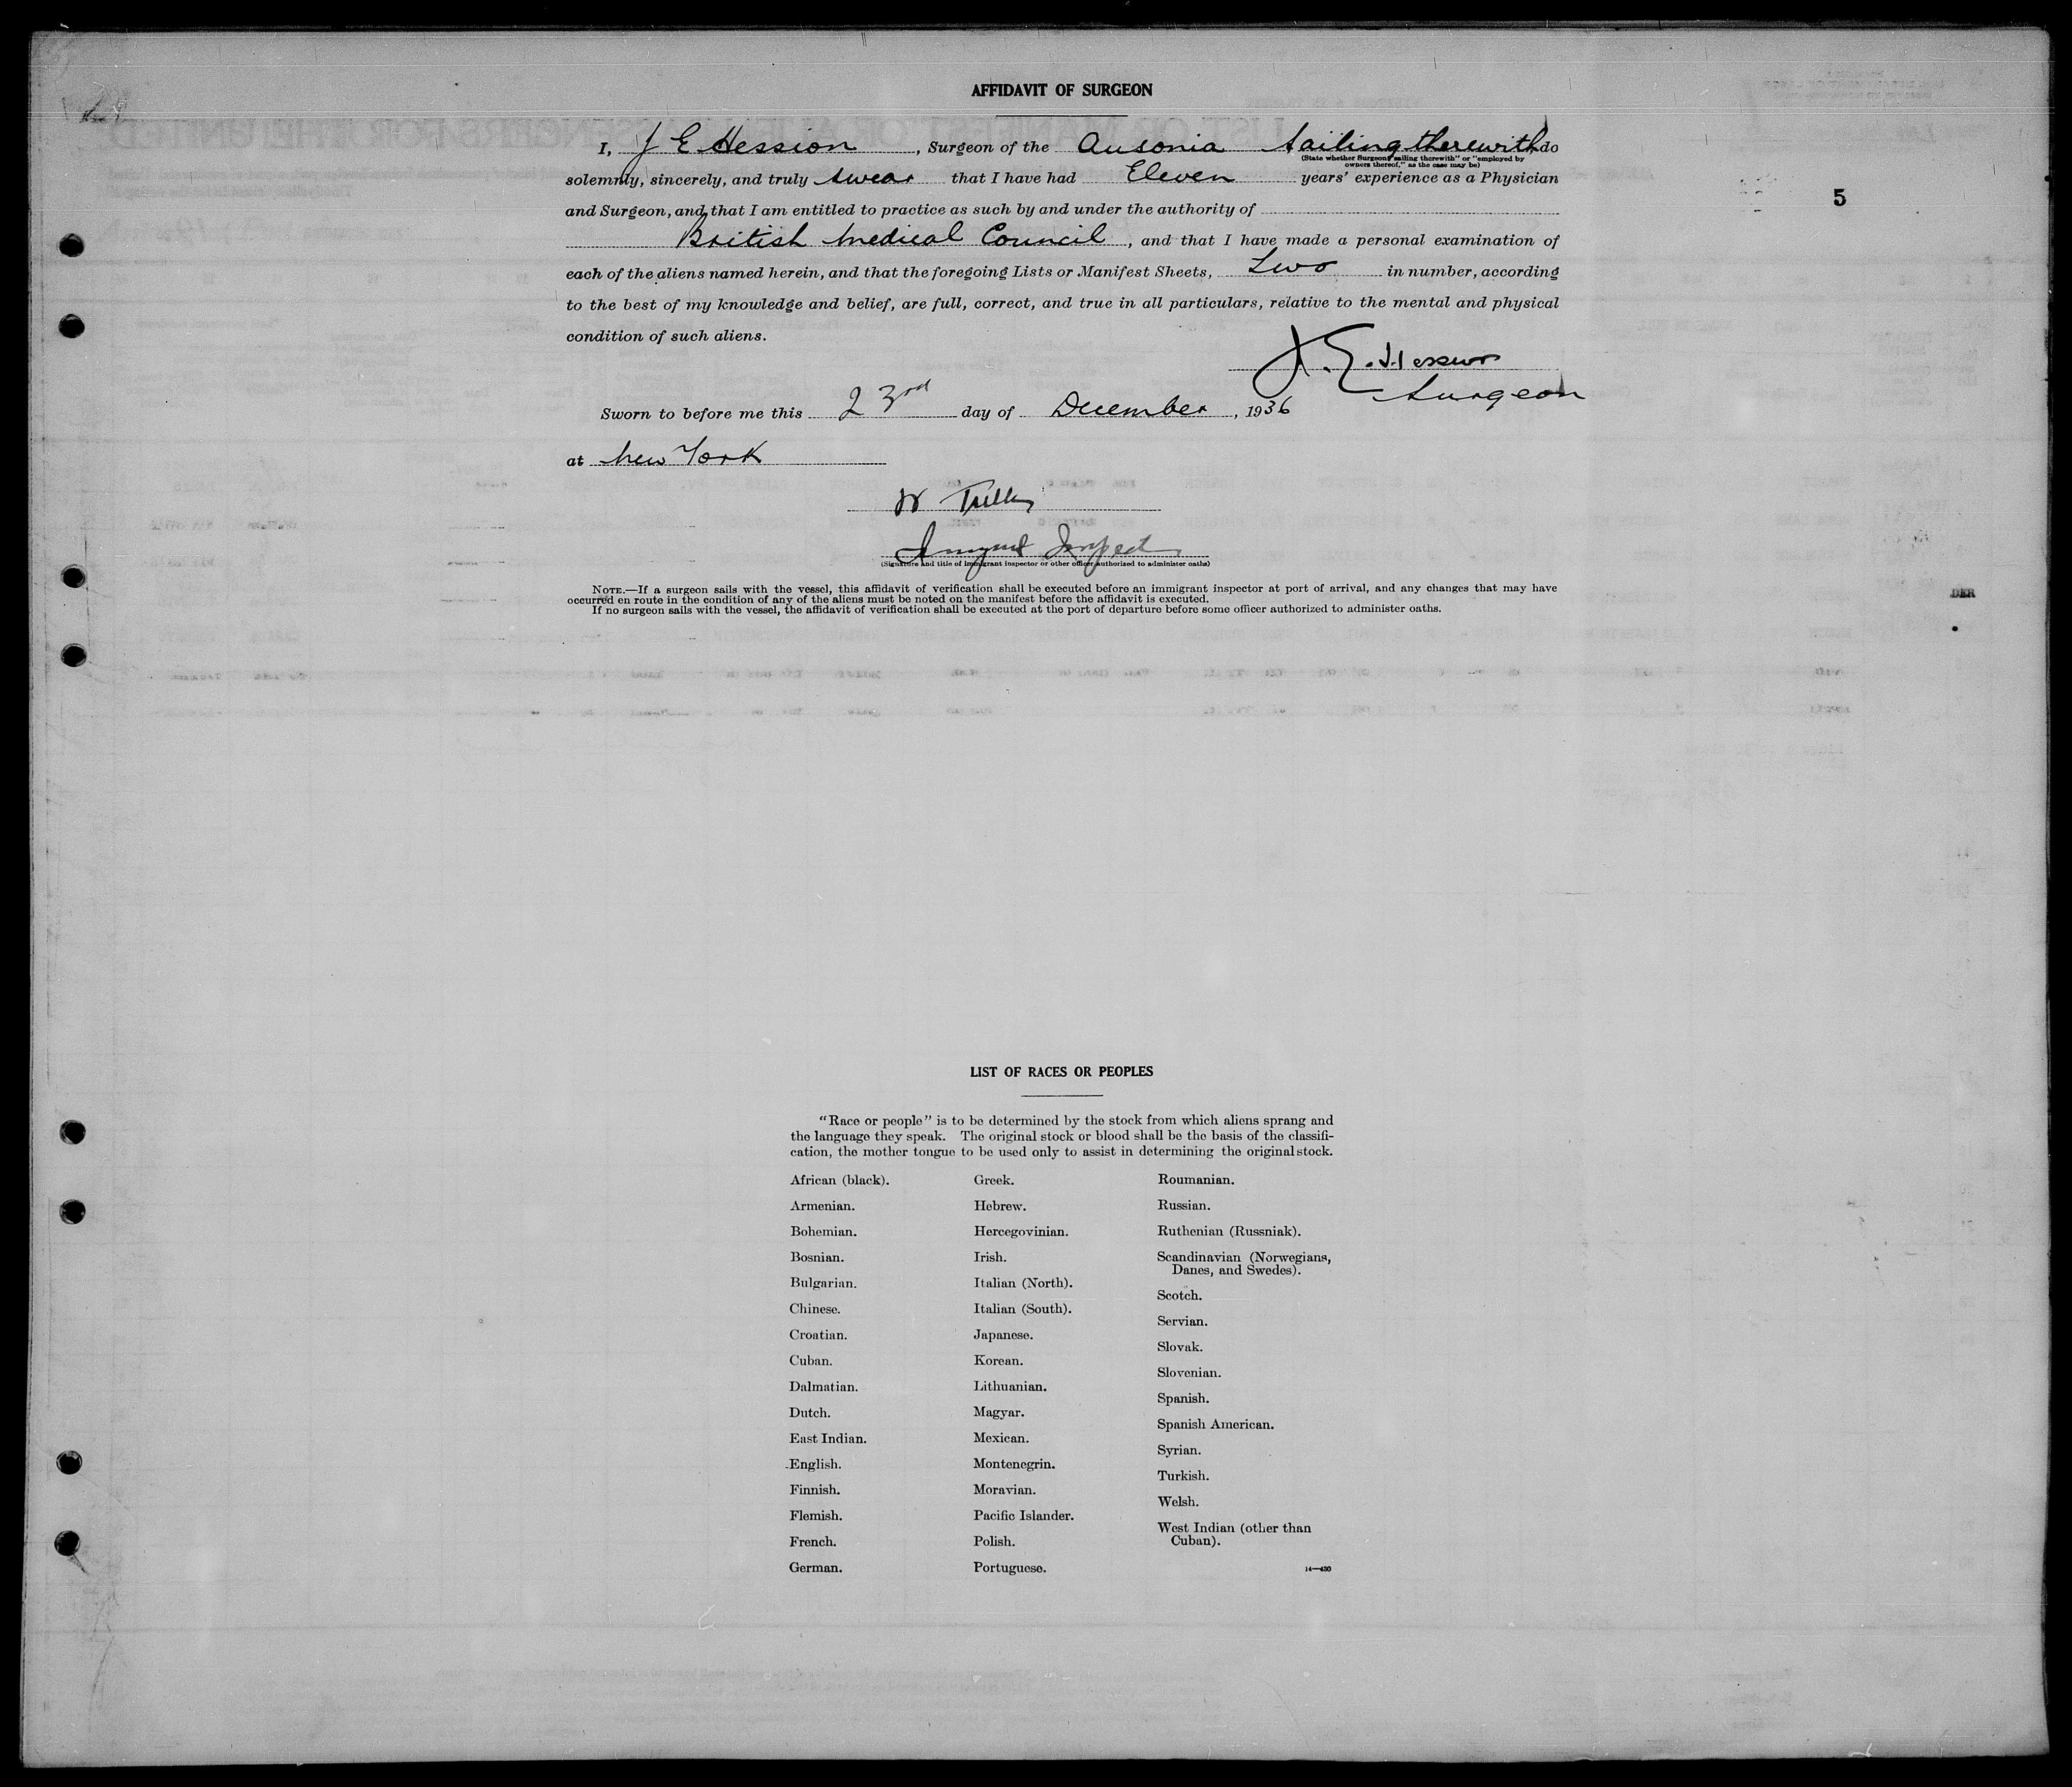 AFFIDAVIT OF SURGEON
I, J E Hession, Surgeon of the Ausonia Sailing therewith do
(State whether Surgeon "sailing therewith" or "employed by
owners thereof," as the case may be)
solemnly, sincerely, and truly swear that I have had Eleven years' experience as a Physician
5
and Surgeon, and that I am entitled to practice as such by and under the authority of
British Medical Council, and that I have made a personal examination of
each of the aliens named herein, and that the foregoing Lists or Manifest Sheets, Two in number, according
to the best of my knowledge and belief, are full, correct, and true in all particulars, relative to the mental and physical
condition of such aliens.
J. E. Hession
Surgeon
Sworn to before me this 23rd day of December, 1936
at New York
W
(Signature and title of immigrant inspector or other officer authorized to administer oaths)
NOTE.—If a surgeon sails with the vessel, this affidavit of verification shall be executed before an immigrant inspector at port of arrival, and any changes that may have
occurred en route in the condition of any of the aliens must be noted on the manifest before the affidavit is executed.
If no surgeon sails with the vessel, the affidavit of verification shall be executed at the port of departure before some officer authorized to administer oaths.
LIST OF RACES OR PEOPLES
"Race or people" is to be determined by the stock from which aliens sprang and
the language they speak. The original stock or blood shall be the basis of the classifi-
cation, the mother tongue to be used only to assist in determining the original stock.
African (black).
Armenian.
Bohemian.
Bosnian.
Bulgarian.
Chinese.
Croatian.
Cuban.
Dalmatian.
Dutch.
East Indian.
English.
Finnish.
Flemish.
French.
German.
Greek.
Hebrew.
Hercegovinian.
Irish.
Italian (North).
Italian (South).
Japanese.
Korean.
Lithuanian.
Magyar.
Mexican.
Montenegrin.
Moravian.
Pacific Islander.
Polish.
Portuguese.
Roumanian.
Russian.
Ruthenian (Russniak).
Scandinavian (Norwegians,
Danes, and Swedes).
Scotch.
Servian.
Slovak.
Slovenian.
Spanish.
Spanish American.
Syrian.
Turkish.
Welsh.
West Indian (other than
Cuban).
14—430